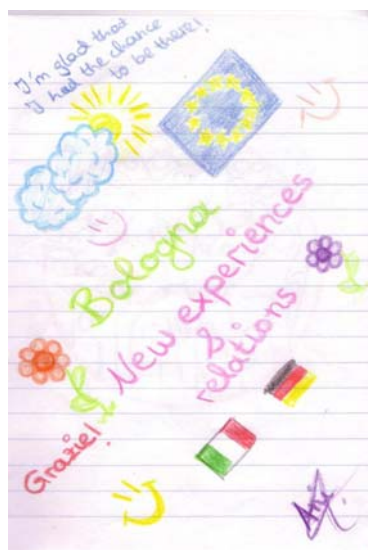 I'm glad that
I had the chance
to be there!
Bologna
New experiences
&
relations
Grazie!
Ani